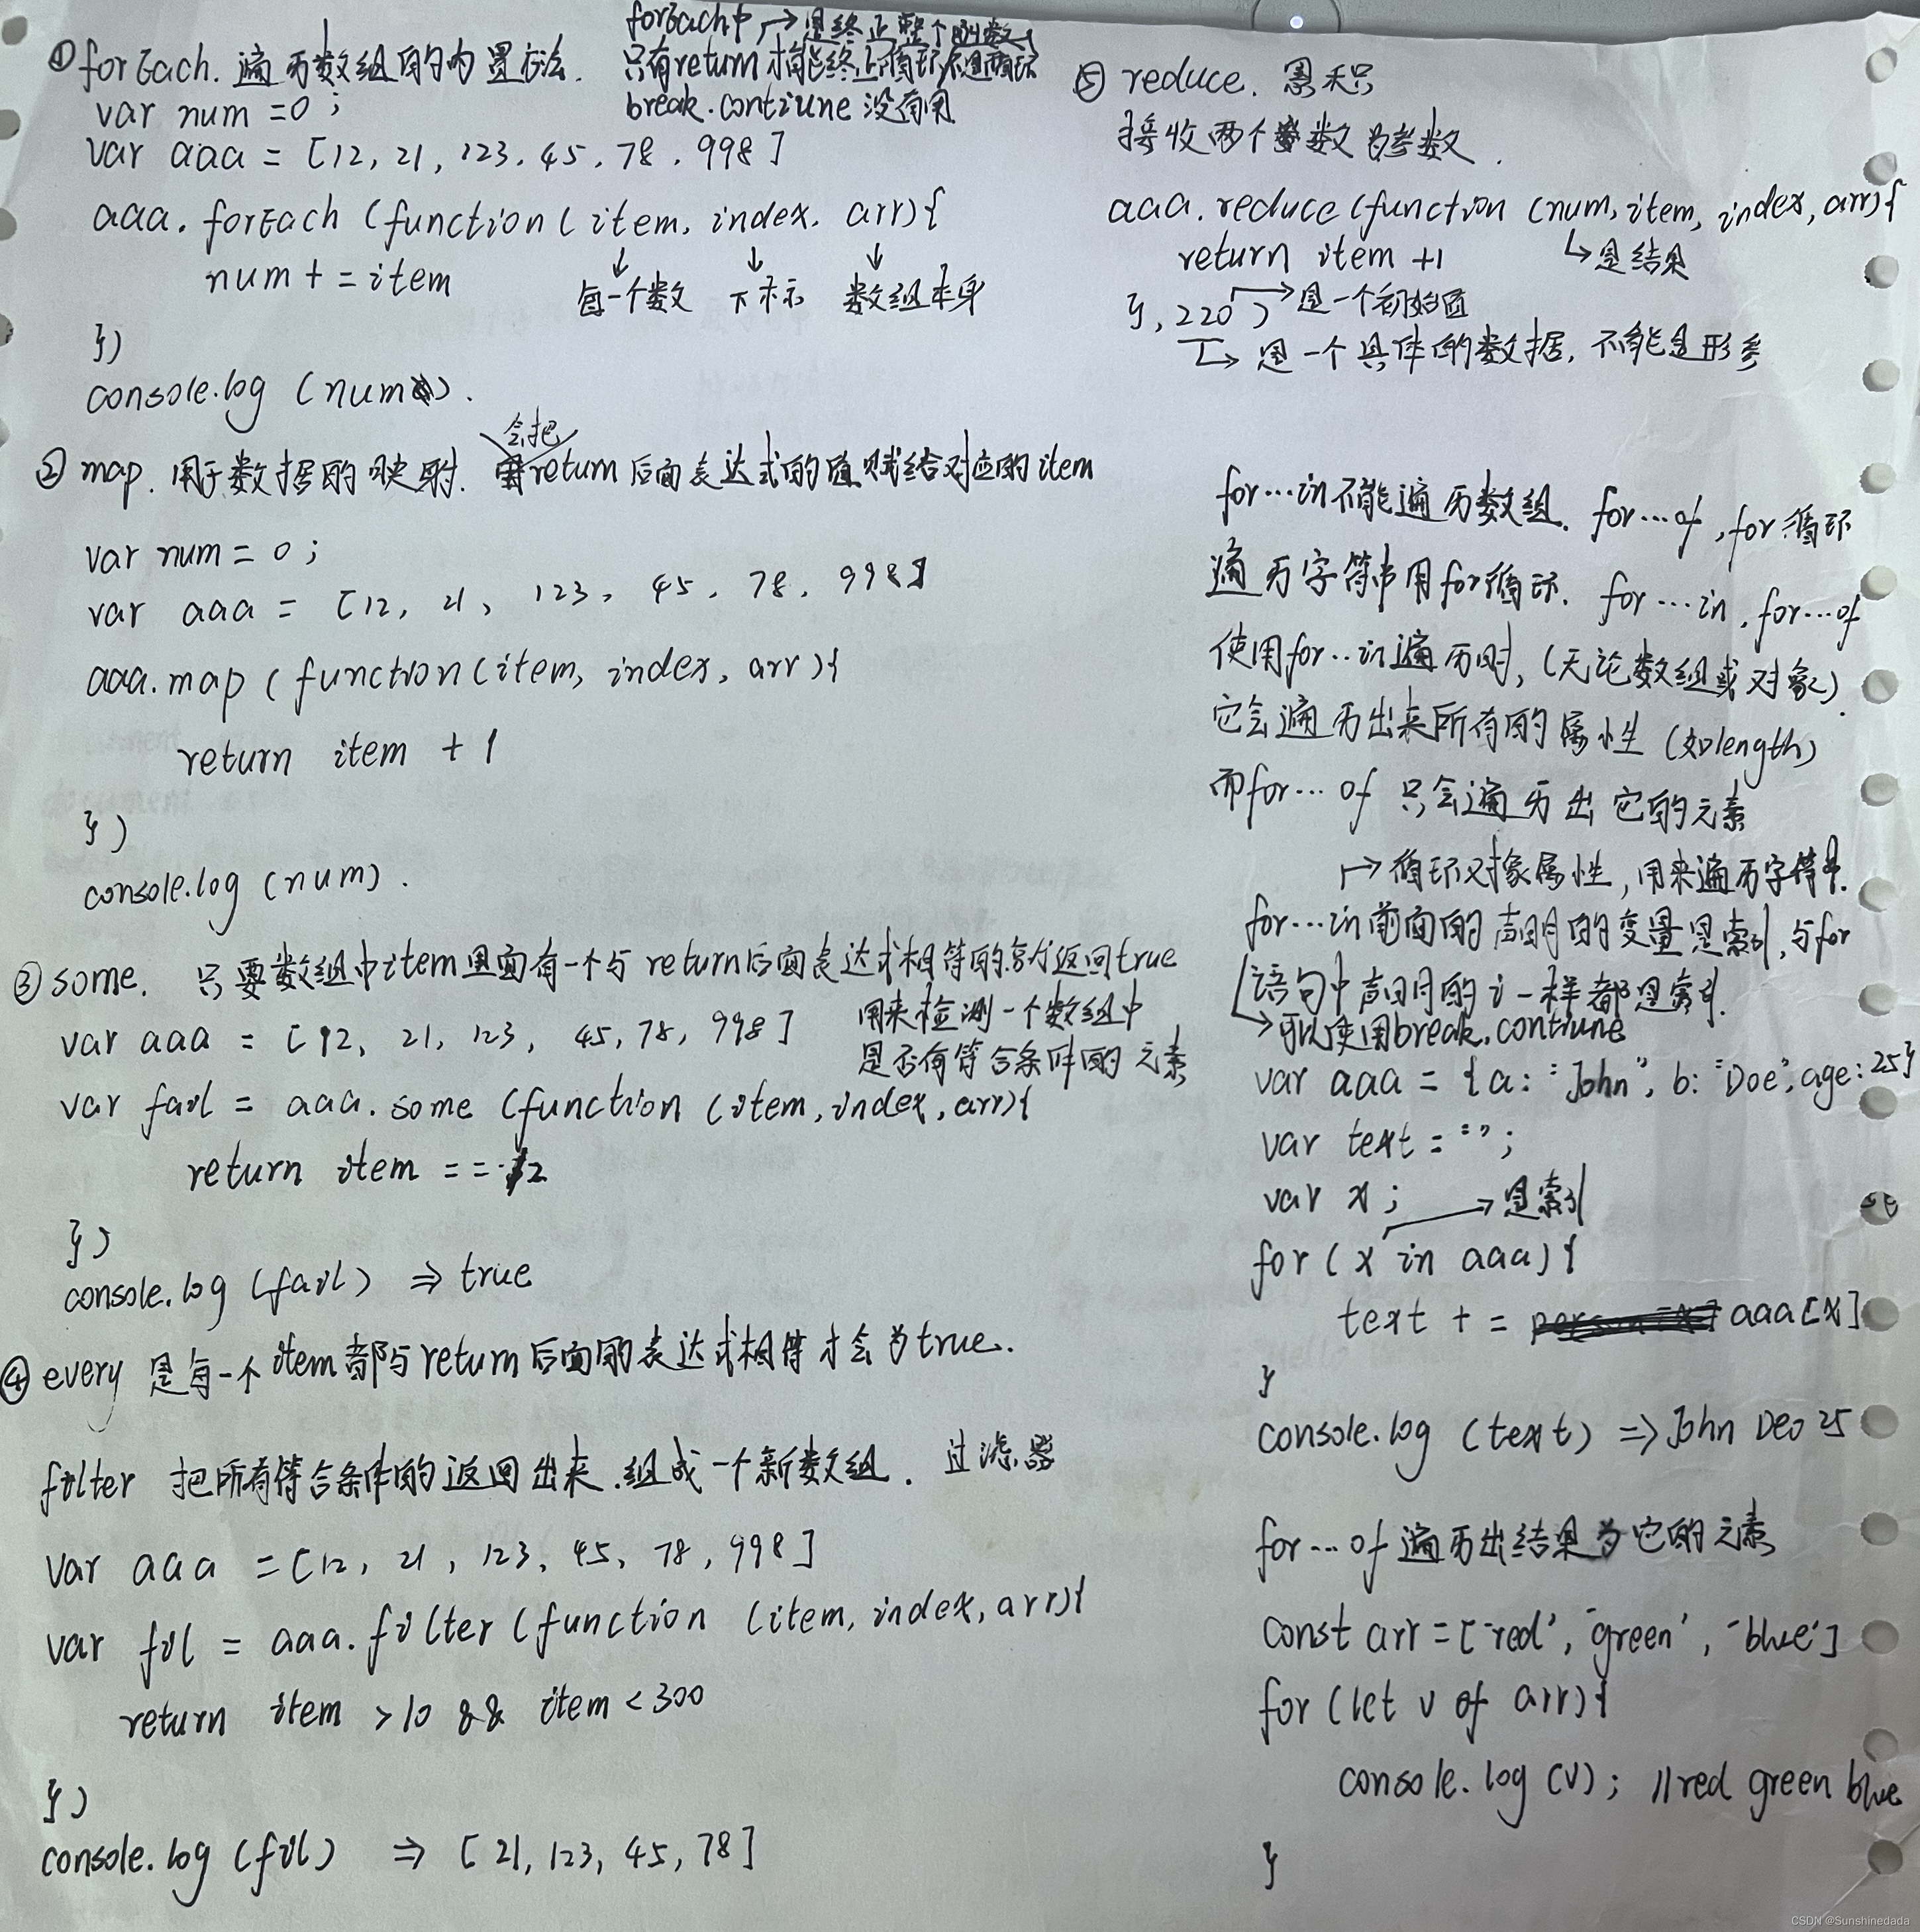 ①forEach. 遍历数组的内置方法.
forEach中 → 是终止整个函数,
只有return才能终止循环,不是循环
break.contiune 没有用
var num =0;
var aaa = [12, 21, 123. 45. 78. 998]
aaa. forEach (function ( item, index. arr){
num + = item
每一个数 下标 数组本身
})
console.log (num).
② map. 用于数据的映射. 会把return后面表达式的值赋给对应的item
var num = 0;
var aaa = [12, 21, 123, 45, 78, 998]
aaa.map ( function(item, index, arr){
return item + 1
})
console.log (num).
③ some. 只要数组中item里面有一个与return后面表达式相等的就返回true
用来检测一个数组中
是否有符合条件的元素
var aaa = [12, 21, 123, 45, 78, 998]
var fail = aaa.some (function (item, index, arr){
return item == 12
})
console.log (fail) ⇒ true
④ every 是每一个item都与return后面的表达式相等才会为true.
filter 把所有符合条件的返回出来.组成一个新数组. 过滤器
var aaa = [12, 21, 123, 45, 78, 998]
var fil = aaa.filter (function (item, index, arr){
return item >10 && item <300
})
console.log (fil) ⇒ [21, 123, 45, 78]
⑤ reduce. 累积
接收两个参数为参数.
aaa.reduce (function (num, item, index, arr){
return item +1 ↳是结果
}, 220 ) → 是一个初始值
→ 是一个具体的数据, 不能是形参
for…in不能遍历数组. for…of, for循环
遍历字符串用for循环. for…in, for…of
使用for…in遍历时, (无论数组或对象)
它会遍历出来所有的属性 (如length)
而for…of 只会遍历出它的元素
→ 循环对象属性, 用来遍历字符串.
for…in前面的声明的变量是索引, 与for
语句中声明的i一样都是索引.
→可以使用break.contiune
var aaa = {a: "John", b: "Doe", age: 25}
var text = "";
var x; → 是索引
for (x in aaa) {
text + = aaa[x]
}
console.log (text) ⇒ John Deo 25
for…of 遍历出结果为它的元素
const arr = ['red', 'green', 'blue']
for (let v of arr){
console.log (v); //red green blue
}
CSDN @Sunshinedada